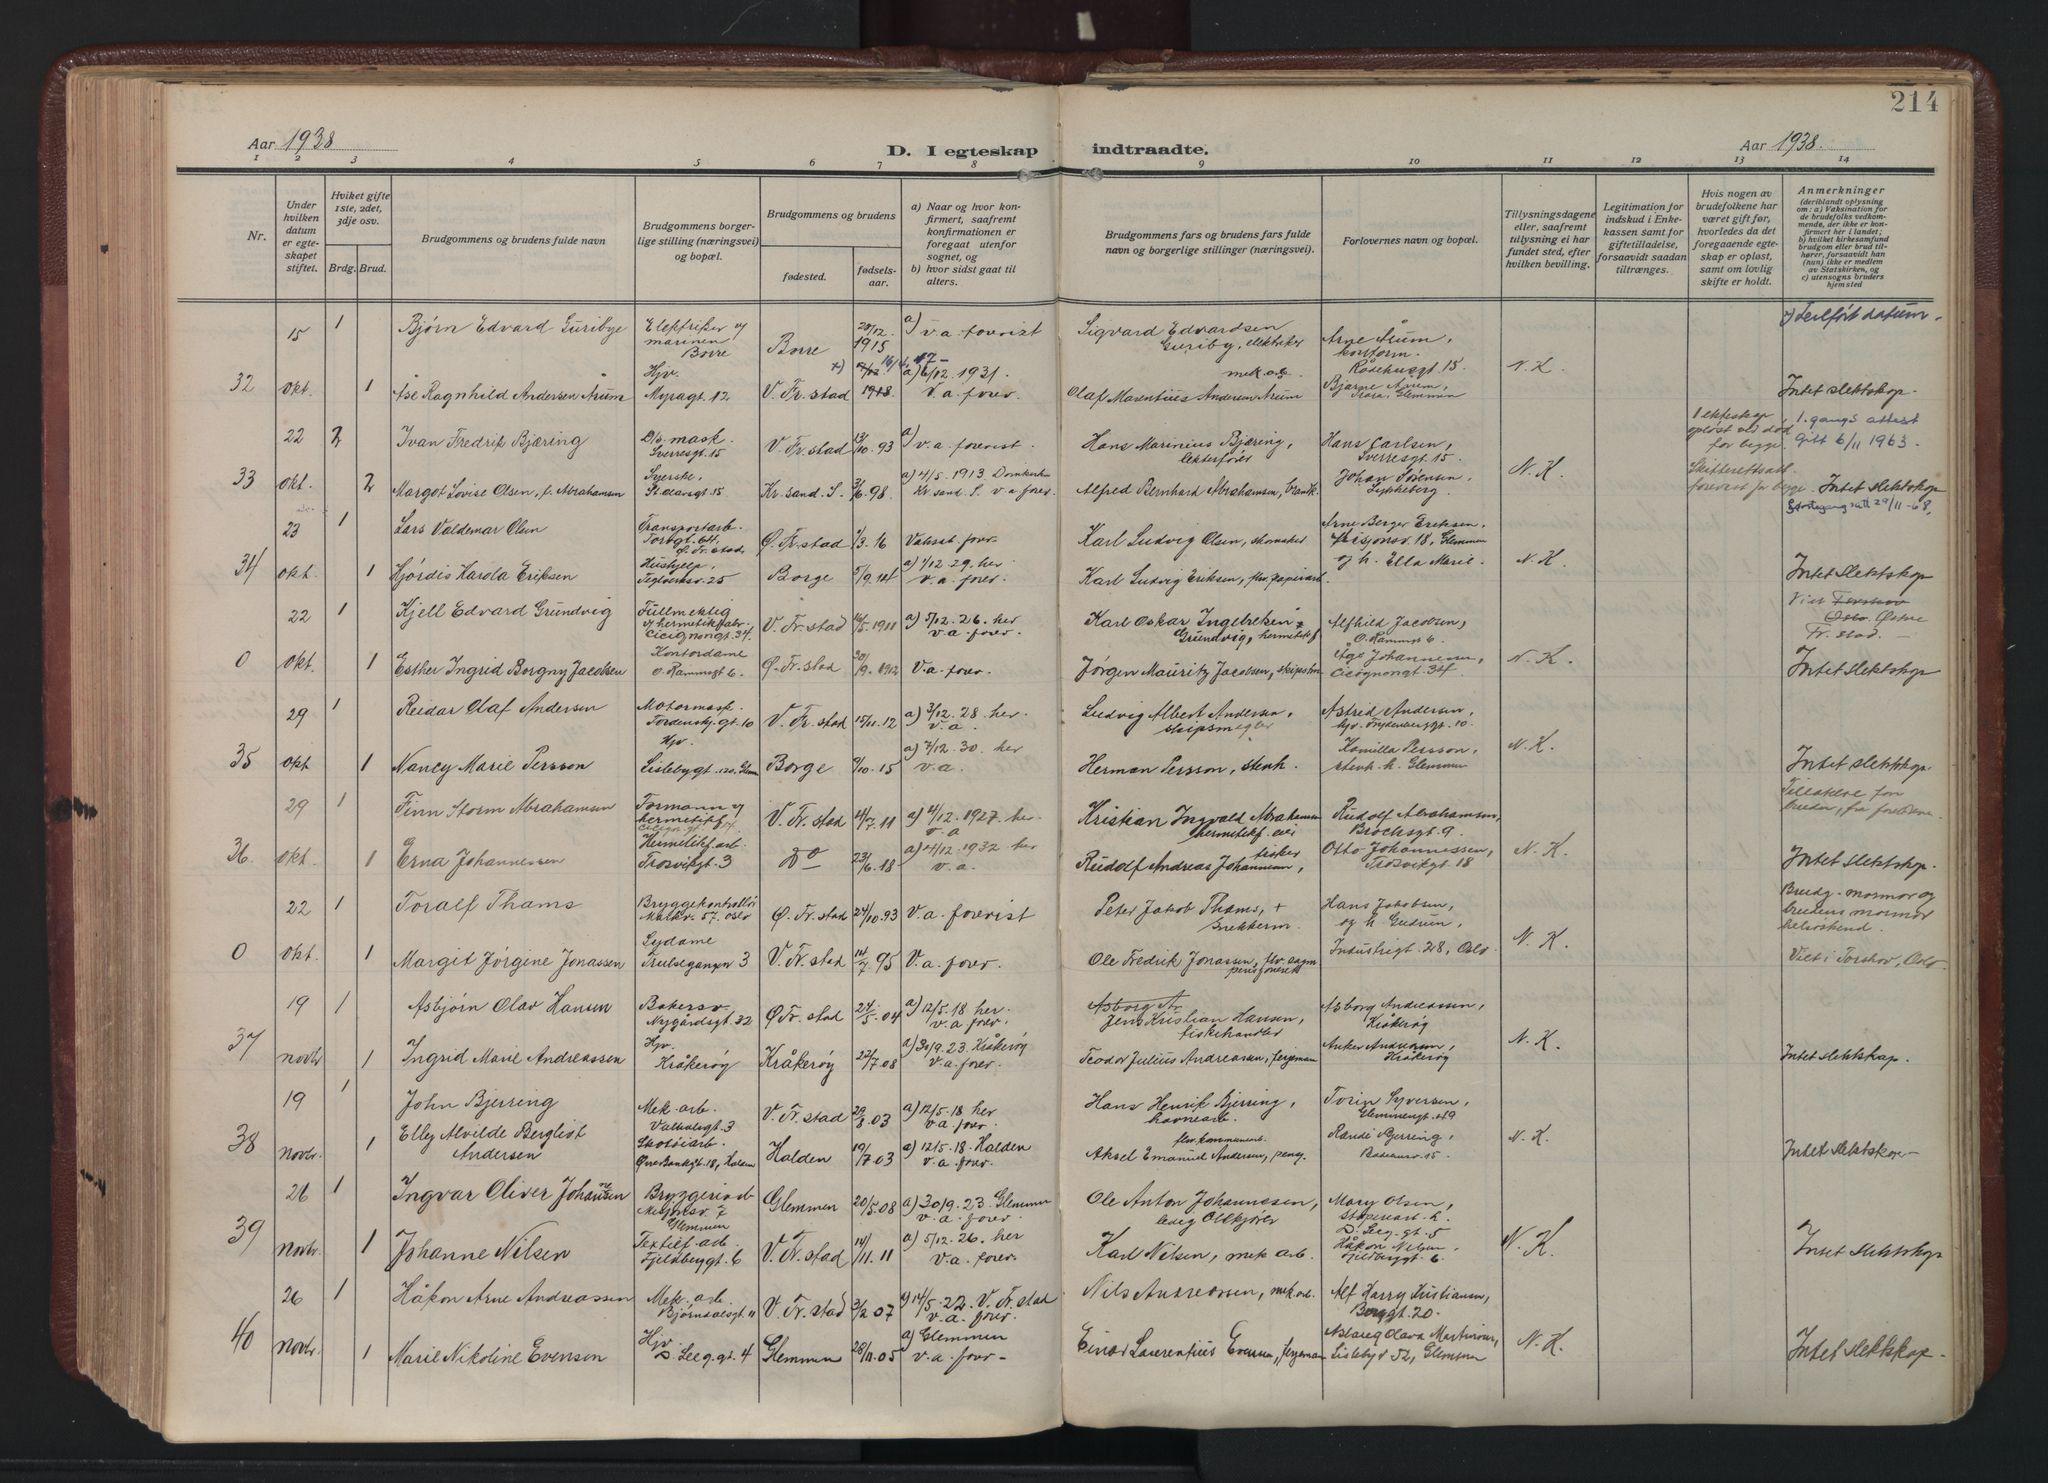 214
Aar 1938
D. I egteskap indtraadte.
Aar 1938.
1 2 3 4 5 6 7 8 9 10 11 12 13 14
Nr.
Under hvilken datum er egteskapet stiftet.
Hviket gifte 1ste, 2det, 3dje osv.
Brdg. Brud.
Brudgommens og brudens fulde navn
Brudgommens borgerlige stilling (næringsvei) og bopæl.
Brudgommens og brudens
fødested.
fødselsaar.
a) Naar og hvor konfirmert, saafremt konfirmationen er foregaat utenfor sognet, og
b) hvor sidst gaat til alters.
Brudgommens fars og brudens fars fulde navn og borgerlige stillinger (næringsvei).
Forlovernes navn og bopæl.
Tillysningsdagene eller, saafremt tillysning ei har fundet sted, efter hvilken bevilling.
Legitimation for indskud i Enkekassen samt for giftetilladelse, forsaavidt saadan tiltrænges.
Hvis nogen av brudefolkene har været gift før, hvorledes da det foregaaende egteskap er opløst, samt om lovlig skifte er holdt.
Anmerkninger (deriblandt oplysning om: a) Vaksination for de brudefolks vedkommende, der ikke er konfirmert her i landet; b) hvilket kirkesamfund brudgom eller brud tilhører, forsaavidt han (hun) ikke er medlem av Statskirken, og c) utensogns bruders hjemsted
15 1 Bjørn Edvard Guribye Elektriker v marinen Borre Borre 20/12. 1915 a) v.a. forvist Sigvard Edvardsen Guriby, elektriker Arne Årum, kontorm. Råsehusgt 15 N.K. x) Feilført datum.
32 okt. 1 Åse Ragnhild Andersen Årum Hjv. Myragt. 12 V. Fr. stad 1918 a) 6/12. 1931. v.a. forv. Olaf Marentius Andersen Årum Bjarne Årum, Trara, Glemmen Intet slektskap.
22 2 Ivan Fredrik Bjæring D/s. mask. Sverresgt. 15 V. Fr. stad 13/10. 93 a) v.a. forvist. Hans Marinius Bjæring, lekterfører Hans Carlsen, Sverresgt. 15. 1 ekteskap opløst ved død for begge. 1. gangs attest gitt 6/11 1963.
33 okt. 2 Margot Lovise Olsen, f. Abrahamsen Syerske, St. Olavsgt. 15 Kr. sand. S. 3/6. 98. a) 4/5. 1913 Domkirken Kr. sand. S. v.a. forv. Alfred Bernhard Abrahamsen, Johan Sørensen, Lykkeberg N.K. Skifteattest forevist for begge. Intet slektskap 29/11-68,
23 1 Lars Valdemar Olsen Transportarb. Torvgt. 64, Ø. Fr. stad Ø. Fr. stad 1/3. 16 Vaksat. forv. Karl Ludvig Olsen, skomaker Arne Berger Eriksen, Misjonsv. 18, Glemmen
34 okt. 1 Hjørdis Karola Eriksen Hushjelp, Teglverksv. 25 Borge 5/9. 14 a) 1/12. 29. her v.a. forv. Karl Ludvig Eriksen, flv. papirarb. og h. Ella Marie N.K. Intet slektskap
22 1 Kjell Edvard Grundvig Fullmektig v hermetikfabr. Cicignongt. 34. V. Fr. stad 16/5. 1911 a) 5/12. 26. her v.a. forv. Karl Oskar Ingebretsen Grundvig, hermetikf Alfhild Jacobsen, O. Rammsgt 6. Viet Torshov Oslo Østre Fr. stad.
0 okt. 1 Esther Ingrid Borgny Jacobsen Kontordame O. Rammsgt 6. Ø. Fr. stad 20/9. 1912 v.a. forv. Jørgen Mauritz Jacobsen, skipsfm Åge Johannesen, Cicignongt. 34 N.K. Intet slektskap
29 1 Reidar Olaf Andersen Motormask. Tordenskj. gt. 10 V. Fr. stad 15/11. 12 a) 3/12. 28. her. v.a. Ludvig Albert Andersen, skipsmegler Astrid Andersen, hjv. Frydenberggt. 10.
35 okt 1 Nancy Marie Persson Hjv. Lislebygt. 120, Glem Borge 9/10. 15 a) 7/12. 30. her v.a. Herman Persson, stenh. Kamilla Persson, stenh. h. Glemmen N.K. Intet slektskap
29 1 Finn Storm Abrahamsen Formann v hermetikf V. Fr. stad 14/7. 11 a) 4/12. 1927. her. v.a Kristian Ingvald Abrahamsen hermetikf. eier Rudolf Abrahamsen, Brochsgt. 9. Tillatelse for bruden, fra foreldrene
36. okt. 1 Erna Johannessen Hermetikf. arb. Trosvikgt. 3 do 23/6. 18 a) 4/12. 1932 her v.a. Rudolf Andreas Johannessen, fisker Otto Johannessen, Trosvikgt. 18 N.K. Intet slektskap.
22 1 Toralf Thams Bryggekontrollør Malkv. 57. Oslo Ø. Fr. stad 24/10. 93 v.a. forvist Peter Jakob Thams, + snekkerm. Hans Jakobsen, og h. Gudrun, Brudg. mormor og brudens mormor helsøskend.
0 okt. 1 Margit Jørgine Jonassen Sydame Truelsegangen 3 V. Fr. stad 14/7. 95 v.a. forv. Ole Fredrik Jonassen, flv. Industrigt. 28, Oslo. N.K. Viet i Torshov, Oslo
19 1 Asbjørn Olav Hansen Bakersv. Nygårdsgt. 32 Ø Fr. stad 24/5. 04 a) 12/5. 18. her. v.a. forv. Asborg An Jens Kristian Hansen, fiskehandler Asborg Andreassen, Kråkerøy
37 novbr 1 Ingrid Marie Andreassen Hjv. Kråkerøy Kråkerøy 22/7. 08 a) 30/9. 23. Kråkerøy v.a. forv. Teodor Julius Andreassen, fergemann Anker Andreassen, Kråkerøy N.K. Intet slektskap.
19 1 John Bjerring Mek. arb. Valhalsgt. 3 V. Fr. stad 29/8. 03 a) 12/5. 18 her v.a. forv. Hans Henrik Bjerring, havnearb. Torin Syversen, Glemmengt. 49
38 novbr. 1 Elley Alvilde Bergliot Andersen Skotøiarb. Øvre Bankgt. 18, Halden Halden 19/7. 03 a) 12/5. 18. Halden v.a. forv. Aksel Emanuel Andersen, Randi Bjerring, N.K. Intet slektskap
26 1 Ingvar Oliver Johansen Bryggeriarb Glemmen Glemmen 20/5. 08 a) 30/9. 23. Glemmen v.a. forv. Ole Anton Johannessen, Mary Olsen, støperiarb. h. S. Leeg. gt. 5
39 novbr. 1 Johanne Nilsen Textilf. arb. Fjeldberggt. 6 V. Fr. stad 14/11. 11 a) 5/12. 26. her v.a. forv. Karl Nilsen, mek arb. Håkon Nilsen, Fjeldberggt. 6 N.K. Intet slektskap
26 1 Håkon Arne Andreassen Mek. arb. Bjørndalsgt. 11 V. Fr. stad 3/2. 07 a) 14/5. 22. V. Fr. stad v.a. forv. Nils Andreassen, mek. arb. Alf Harry Kristiansen, Borggt. 20.
40 novbr. 1 Marie Nikoline Evensen Hjv S. Leeg. gt. 4 Glemmen 28/11. 05 a) Glemmen v.a. forv. Einar Laurentius Evensen, fergemann Aslaug Olava Martinsen, Lisleby v 52, Glemmen N.K. Intet slektskap.